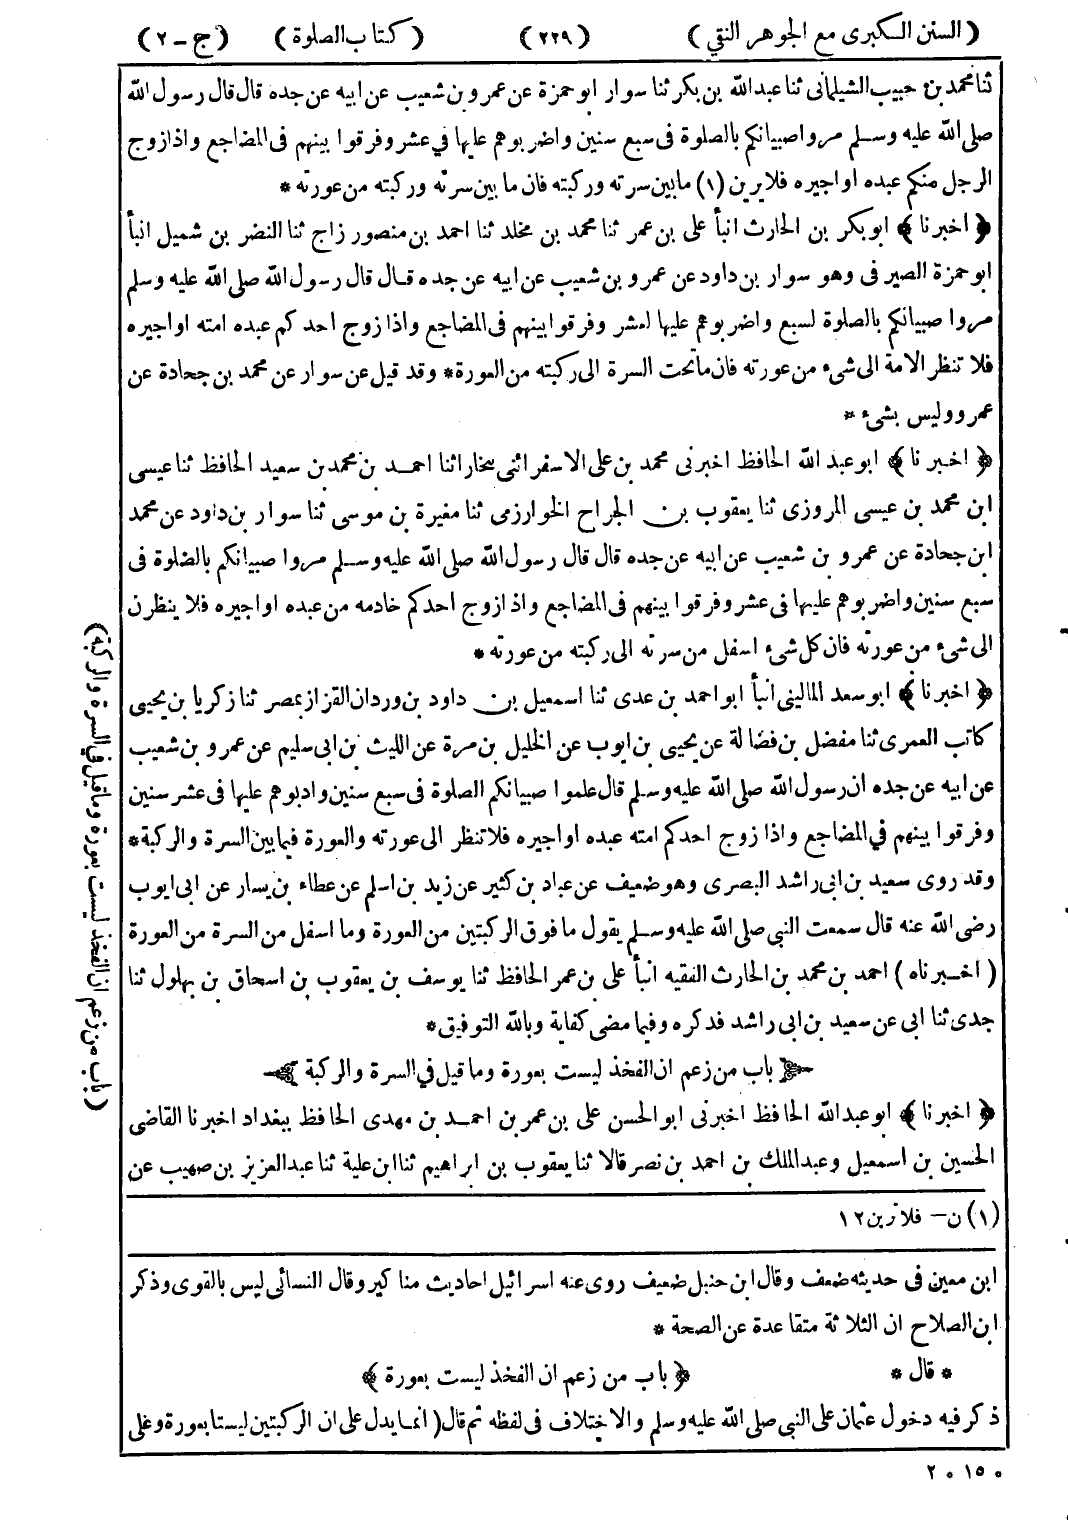 (السنن الكبرى مع الجوهر النقي) (٢٢٩) (كتاب الصلوة) (ج-٢)
ثنا محمد بن حبيب الشيلمانى ثنا عبدالله بن بكر ثنا سوار ابوحمزة عن عمرو بن شعيب عن ابيه عن جده قال قال رسول الله
صلى الله عليه وسلم مروا صبيانكم بالصلوة فى سبع سنين واضربوهم عليها في عشر وفرقوا بينهم فى المضاجع واذا زوج
الرجل منكم عبده او اجيره فلا يرين (١) ما بين سرته وركبته فان ما بين سرته وركبته من عورته *
﴿ اخبرنا ﴾ ابوبكر بن الحارث انبأ على بن عمر ثنا محمد بن مخلد ثنا احمد بن منصور زاج ثنا النضر بن شميل انبأ
ابوحمزة الصير فى وهو سوار بن داود عن عمرو بن شعيب عن ابيه عن جده قال قال رسول الله صلى الله عليه وسلم
مروا صبيانكم بالصلوة لسبع واضربوهم عليها لعشر وفرقوا بينهم فى المضاجع واذا زوج احدكم عبده امته او اجيره
فلا تنظر الامة الى شىء من عورته فان ماتحت السرة الى ركبته من العورة* وقد قيل عن سوار عن محمد بن جحادة عن
عمرو وليس بشىء *
﴿ اخبرنا ﴾ ابوعبد الله الحافظ اخبرنى محمد بن على الاسفرائنى ببخارا ثنا احمد بن محمد بن سعيد الحافظ ثنا عيسى
ابن محمد بن عيسى المروزى ثنا يعقوب بن الجراح الخوارزمى ثنا مغيرة بن موسى ثنا سوار بن داود عن محمد
ابن جحادة عن عمرو بن شعيب عن ابيه عن جده قال قال رسول الله صلى الله عليه وسلم مروا صبيانكم بالصلوة فى
سبع سنين واضربوهم عليها فى عشر وفرقوا بينهم فى المضاجع واذا زوج احدكم خادمه من عبده او اجيره فلا ينظرن
الى شىء من عورته فان كل شىء اسفل من سرته الى ركبته من عورته *
﴿ اخبرنا ﴾ ابوسعد المالينى انبأ ابو احمد بن عدى ثنا اسمعيل بن داود بن وردان القزاز بمصر ثنا زكريا بن يحيى
كاتب العمرى ثنا مفضل بن فضالة عن يحيى بن ايوب عن الخليل بن مرة عن الليث بن ابى سليم عن عمرو بن شعيب
عن ابيه عن جده ان رسول الله صلى الله عليه وسلم قال علموا صبيانكم الصلوة فى سبع سنين وادبوهم عليها فى عشر سنين
وفرقوا بينهم في المضاجع واذا زوج احدكم امته عبده او اجيره فلا تنظر الى عورته والعورة فيما بين السرة والركبة*
وقد روى سعيد بن ابى راشد البصرى وهو ضعيف عن عباد بن كثير عن زيد بن اسلم عن عطاء بن يسار عن ابى ايوب
رضى الله عنه قال سمعت النبى صلى الله عليه وسلم يقول ما فوق الركبتين من العورة وما اسفل من السرة من العورة
(اخبرناه) احمد بن محمد بن الحارث الفقيه انبأ على بن عمر الحافظ ثنا يوسف بن يعقوب بن اسحاق بن بهلول ثنا
جدى ثنا ابى عن سعيد بن ابى راشد فذكره وفيما مضى كفاية وبالله التوفيق*
باب من زعم ان الفخذ ليست بعورة وما قيل في السرة والركبة
﴿ اخبرنا ﴾ ابوعبدالله الحافظ اخبرنى ابو الحسن على بن عمر بن احمد بن مهدى الحافظ ببغداد اخبرنا القاضى
الحسين بن اسمعيل وعبدالملك بن احمد بن نصر قالا ثنا يعقوب بن ابراهيم ثنا ابن علية ثنا عبدالعزيز بن صهيب عن
(١) ن - فلا ترين ١٢
ابن معين فى حديثه ضعف وقال ابن حنبل ضعيف روى عنه اسرائيل احاديث مناكير وقال النسائى ليس بالقوى وذكر
ابن الصلاح ان الثلاثة متقاعدة عن الصحة *
* قال * ﴿ باب من زعم ان الفخذ ليست بعورة ﴾
ذكر فيه دخول عثمان على النبى صلى الله عليه وسلم والاختلاف فى لفظه ثم قال (انما يدل على ان الركبتين ليستا بعورة وعلى
٢٠١٥٠
(باب من زعم ان الفخذ ليست بعورة وما قيل في السرة والركبة)